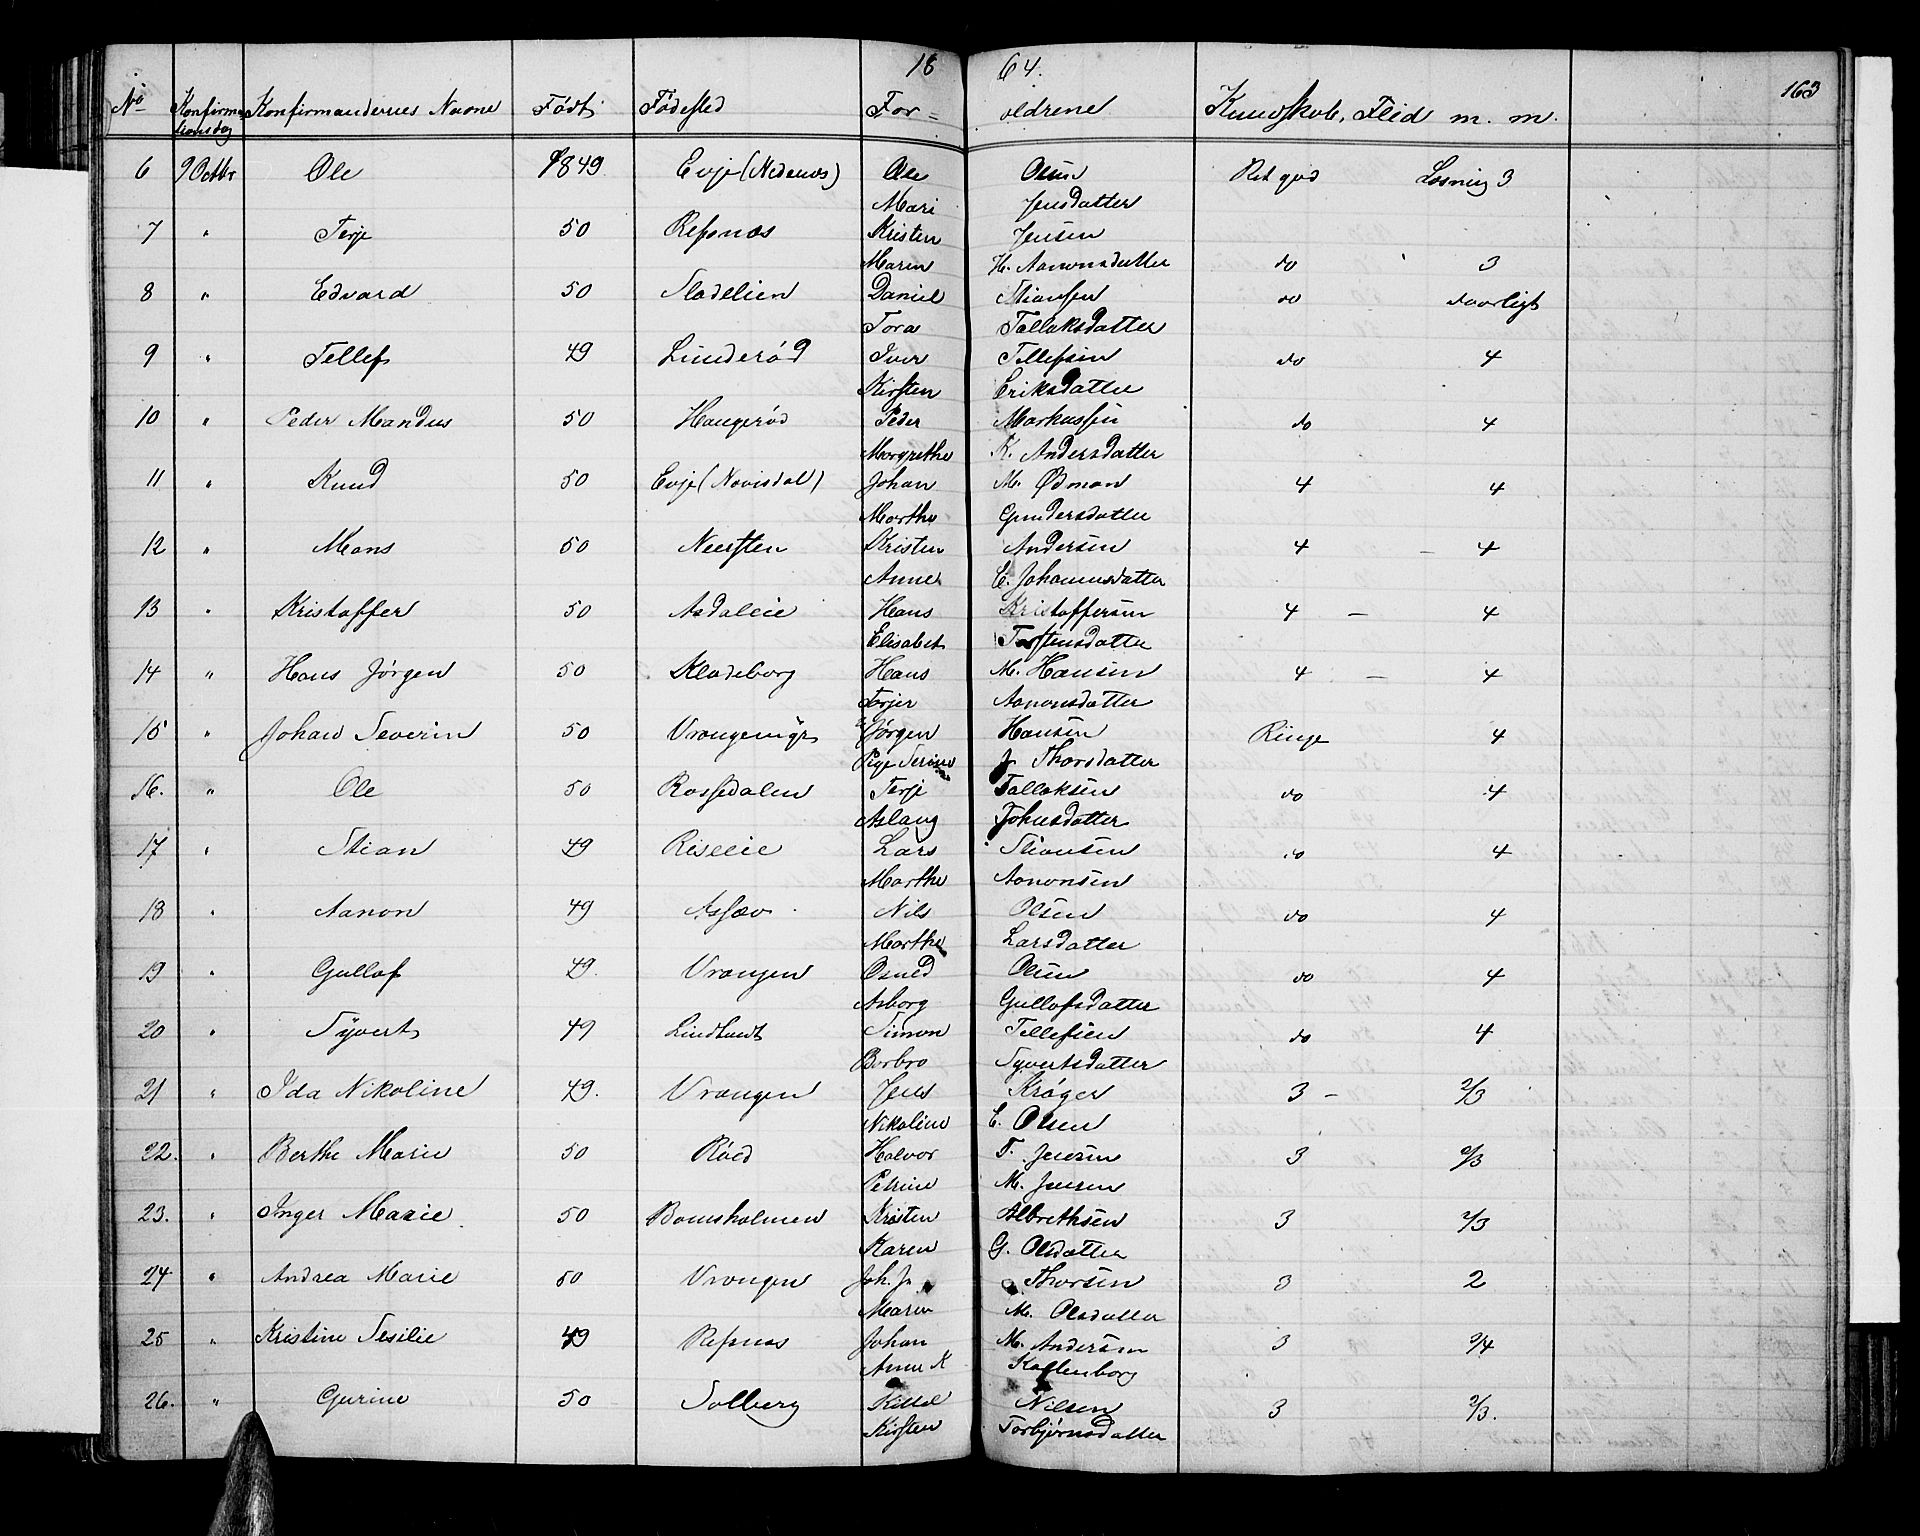 18 64. 163
No Konfirma- Konfirmandernes Navne Født Fødested For- ældrene Kundskab, Flid m. m.
tionsdag
6 9 Octbr Ole 1849 Evje (Nedenæs) Ole Olsen Ret god Læsning 3
Mari Jensdatter
7 " Terje 50 Refsnæs Kristen Jensen
Maren H. Aanonsdatter do 3
8 " Edvard 50 Sladelien Daniel Stiansen do daarligt
Tora Tallaksdatter
9 " Tellef 49 Linderød Iver Tellefsen do 4
Kirsten Eriksdatter
10 " Peder Mandus 50 Haugerød Peder Markussen do 4
Margrethe K. Andersdatter
11 " Knud 50 Evje (Navisdal) Johan M. Ødman 4 4
Marthe Gundersdatter
12 " Mons 50 Neersten Kristen Andersen 4 – 4
Anne C. Johannesdatter
13 " Kristoffer 50 Asdaleie Hans Kristoffersen 4 – 4
Elisabet Torstensdatter
14 " Hans Jørgen 50 Kladeborg Hans M. Hansen 4 – 4
Torjer Aanonsdatter
15 " Johan Severin 50 Vrangevige Jørgen Hansen Ringe 4
Pige Serine J. Thorsdatter
16. " Ole 50 Rossedalen Terje Tallaksen do 4
Aslaug Johnsdatter
17 " Stian 49 Riseeie Lars Stiansen do 4
Marthe Aanonsen
18 " Aanon 49 Assæv Nils Olsen do 4
Marthe Larsdatter
19 " Gullof 49. Vrangen Osuld Olsen do 4
Asborg Gullofsdatter
20 " Syvert 49 Lindtveit Simon Tellefsen do 4
Borbro Syvertsdatter
21 " Ida Nikoline 49. Vrangen Jens Krøger 3 – 2/3
Nikoline C. Olsen
22. " Berthe Marie 50 Røed Halvor T. Jensen 3 2/3
Petrine M. Jensen
23. " Inger Marie 50 Bomsholmen Kristen Albrethsen 3 2/3
Karen G. Olsdatter
24 " Andrea Marie 50 Vrangen Joh. J. Thorsen 3 2
Maren M. Olsdatter
25 " Kristine Sesilie 49 Refsnæs Johan M. Andersen 3 3/4
Anne K Kallenborg
26. " Gurine 50 Solberg Kittel Nilsen 3 2/3.
Kirsten Torbjørnsdatter